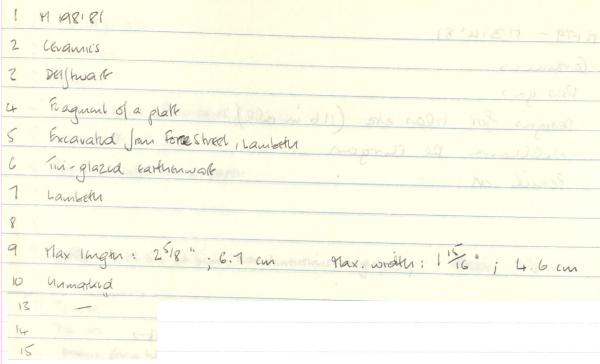 1 M 198'81
2 Ceramics
3 Delftware
4 Fragment of a plate
5 Excavated from Fore Street, Lambeth
6 Tin-glazed earthenware
7 Lambeth
8
9 Max length: 2 5/8"; 6.7 cm Max. width: 1 15/16"; 4.6 cm
10 Unmarked
13 —
14
15